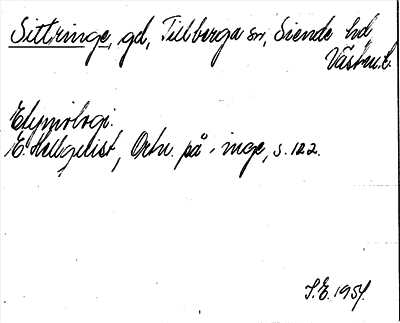 Sittringe, gd, Tillberga sn, Siende hd
Västm.l.
Etymologi.
E. Hellquist, Ortn. på -inge, s. 122.
S.E. 1954.